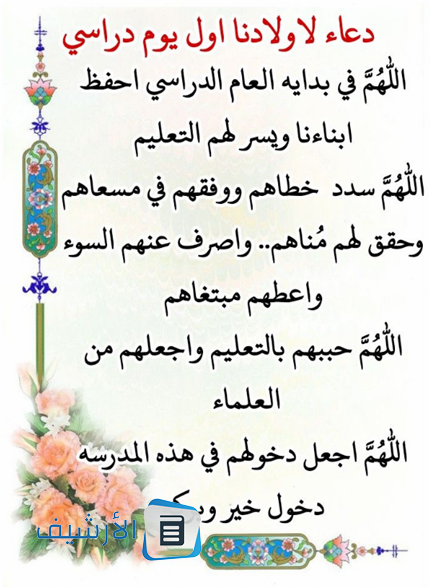 دعاء لاولادنا اول يوم دراسي
اللّٰهُمَّ في بدايه العام الدراسي احفظ
ابناءنا ويسر لهم التعليم
اللّٰهُمَّ سدد خطاهم ووفقهم في مسعاهم
وحقق لهم مُناهم.. واصرف عنهم السوء
واعطهم مبتغاهم
اللّٰهُمَّ حببهم بالتعليم واجعلهم من
العلماء
اللّٰهُمَّ اجعل دخولهم في هذه المدرسه
دخول خير
الأرشيف